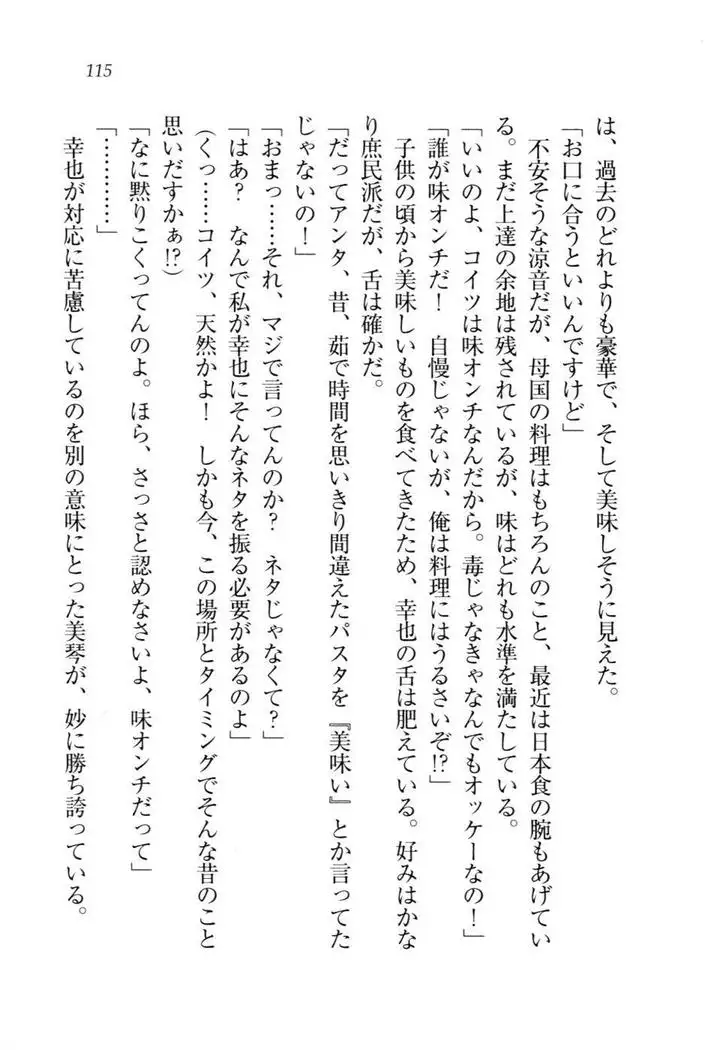 115
は、過去のどれよりも豪華で、そして美味しそうに見えた。
「お口に合うといいんですけど」
不安そうな涼音だが、母国の料理はもちろんのこと、最近は日本食の腕もあげてい
る。まだ上達の余地は残されているが、味はどれも水準を満たしている。
「いいのよ、コイツは味オンチなんだから。毒じゃなきゃなんでもオッケーなの！」
「誰が味オンチだ！　自慢じゃないが、俺は料理にはうるさいぞ!?」
子供の頃から美味しいものを食べてきたため、幸也の舌は肥えている。好みはかな
り庶民派だが、舌は確かだ。
「だってアンタ、昔、茹で時間を思いきり間違えたパスタを『美味い』とか言ってた
じゃないの！」
「おまっ……それ、マジで言ってんのか？　ネタじゃなくて？」
「はあ？　なんで私が幸也にそんなネタを振る必要があるのよ」
（くっ……コイツ、天然かよ！　しかも今、この場所とタイミングでそんな昔のこと
思いだすかぁ!?）
「なに黙りこくってんのよ。ほら、さっさと認めなさいよ、味オンチだって」
「…………」
幸也が対応に苦慮しているのを別の意味にとった美琴が、妙に勝ち誇っている。